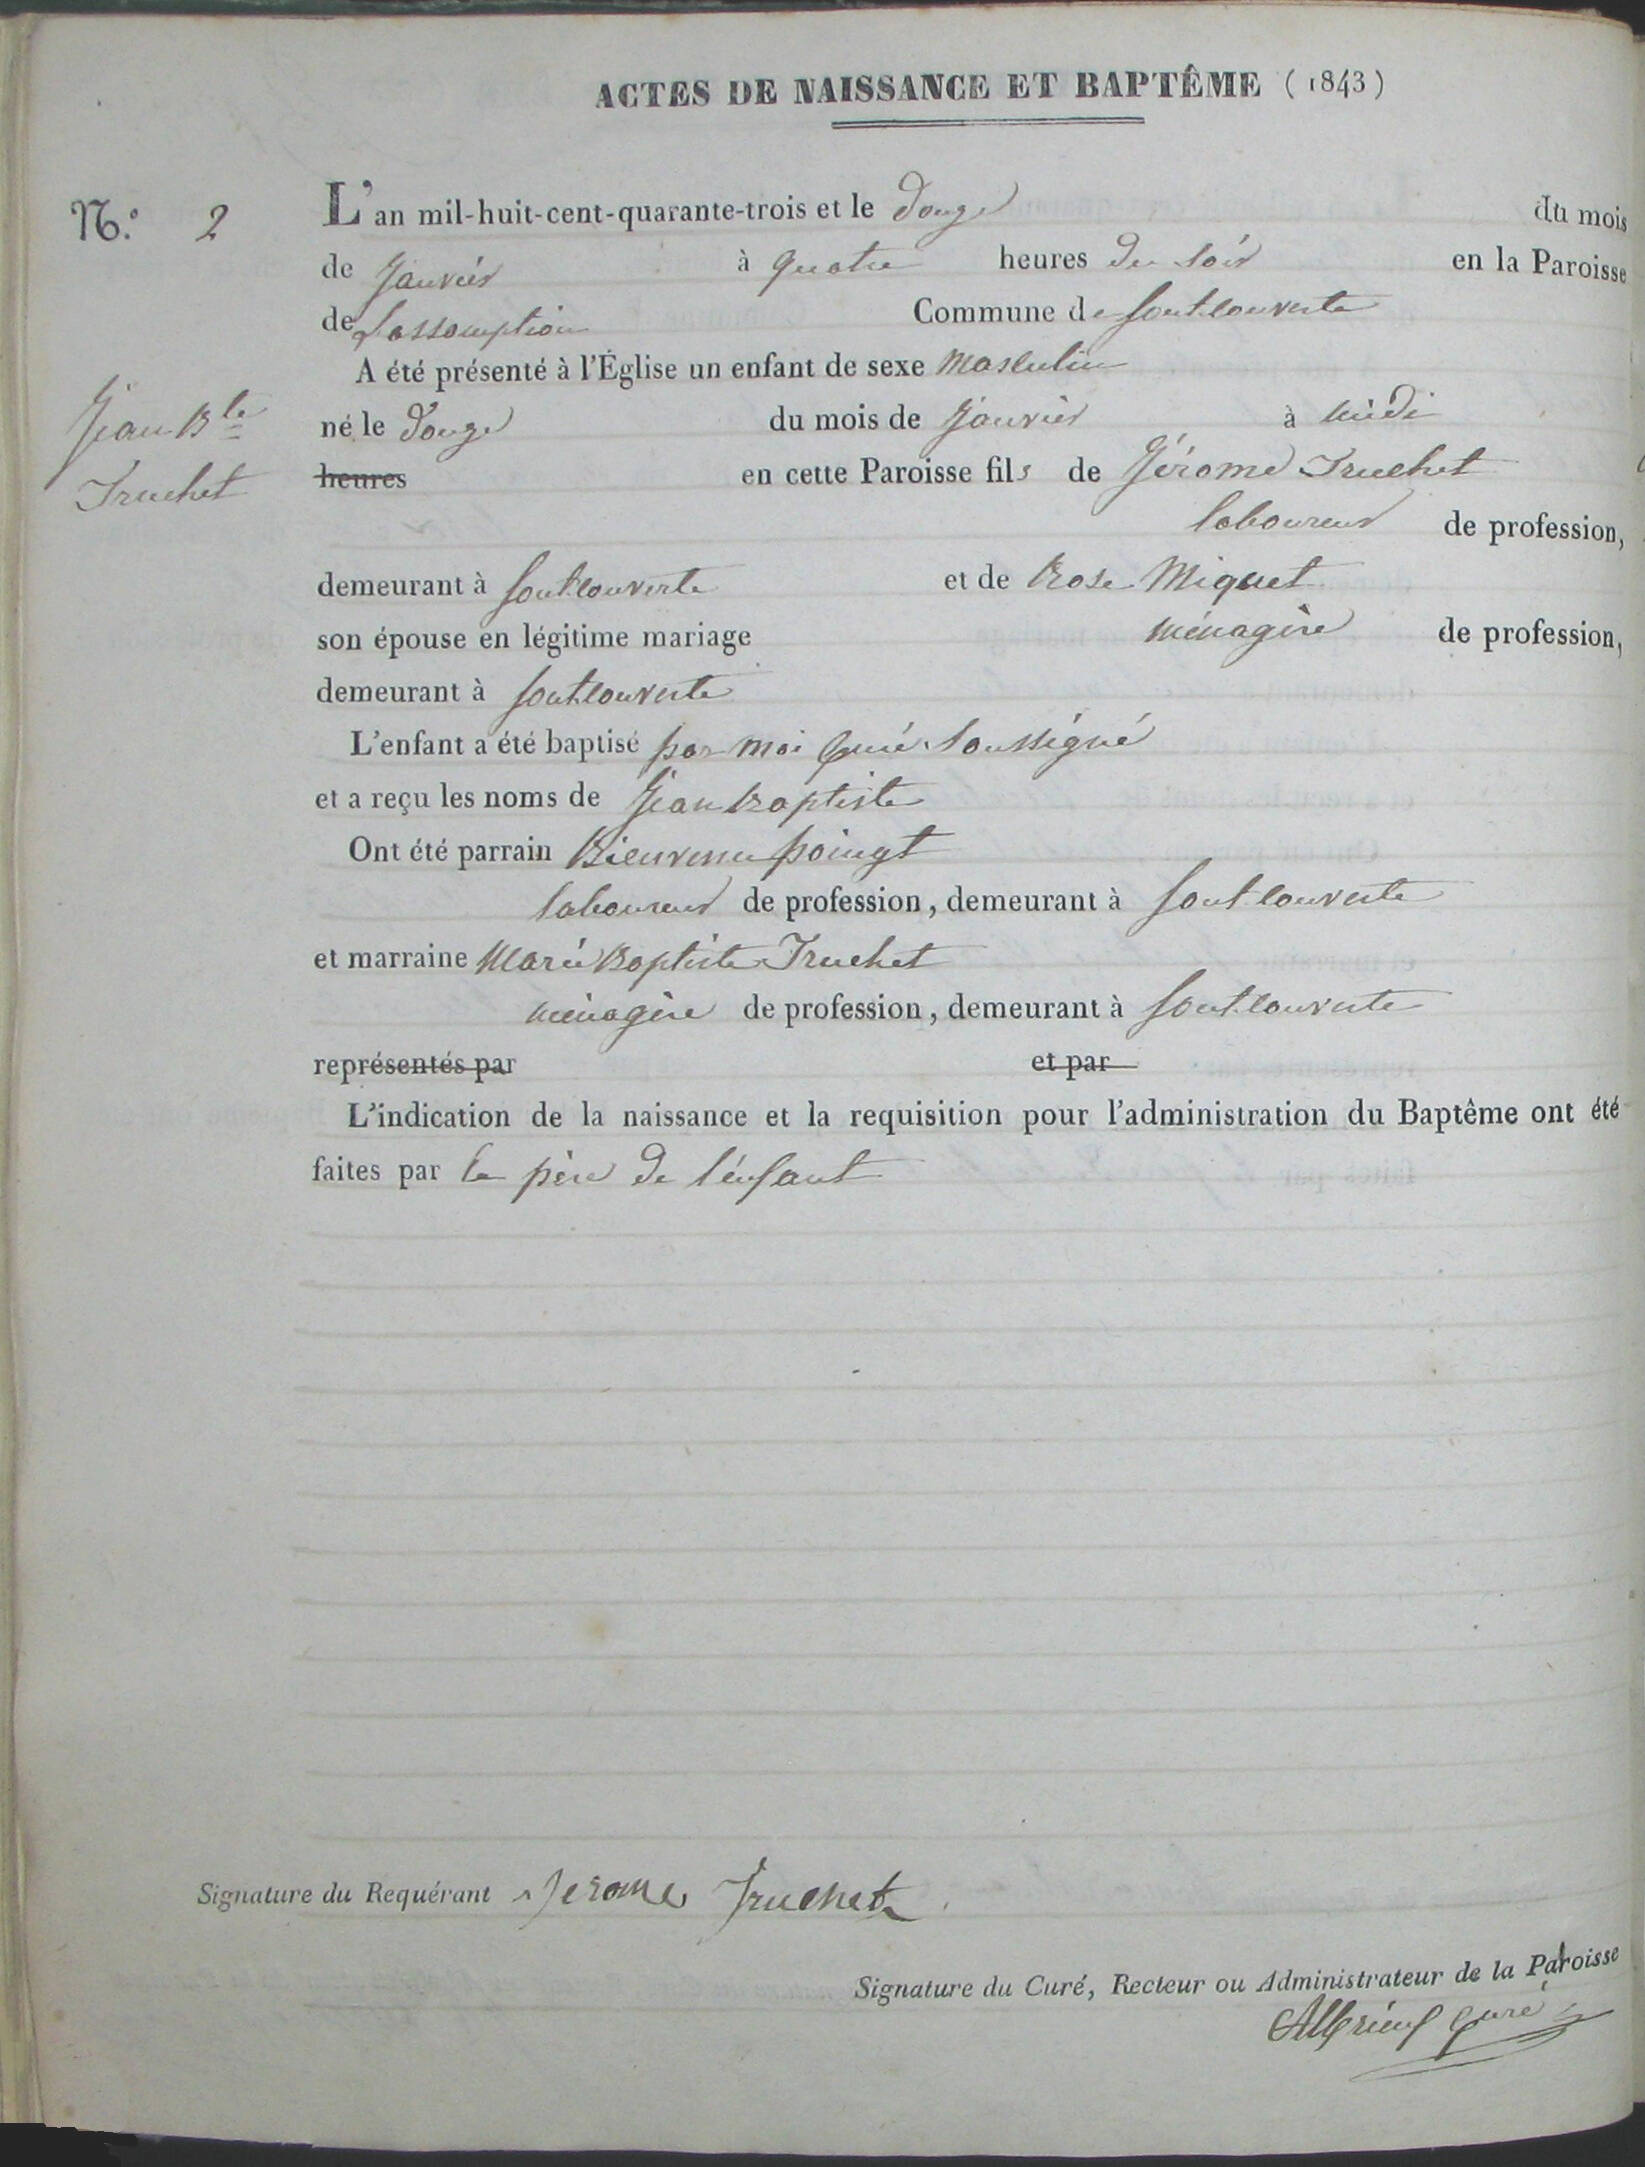 ACTES DE NAISSANCE ET BAPTÊME (1843)
N.º 2
L'an mil-huit-cent-quarante-trois et le douze du mois
de janvier à quatre heures du soir en la Paroisse
de Lassomption Commune de fontcouverte
A été présenté à l'Église un enfant de sexe masculin
Jean Bte
Truchet
né le douze du mois de janvier à midi
heures en cette Paroisse fils de Jérome Truchet
laboureur de profession,
demeurant à fontcouverte et de Rose Miquet
son épouse en légitime mariage ménagère de profession,
demeurant à fontcouverte
L'enfant a été baptisé par moi Curé soussigné
et a reçu les noms de Jean Baptiste
Ont été parrain Bienvenu poingt
laboureur de profession, demeurant à fontcouverte
et marraine Marie Baptiste Truchet
ménagère de profession, demeurant à fontcouverte
représentés par et par
L'indication de la naissance et la requisition pour l'administration du Baptême ont été
faites par le père de l'enfant
Signature du Requérant Jerome Truchet
Signature du Curé, Recteur ou Administrateur de la Paroisse
curé